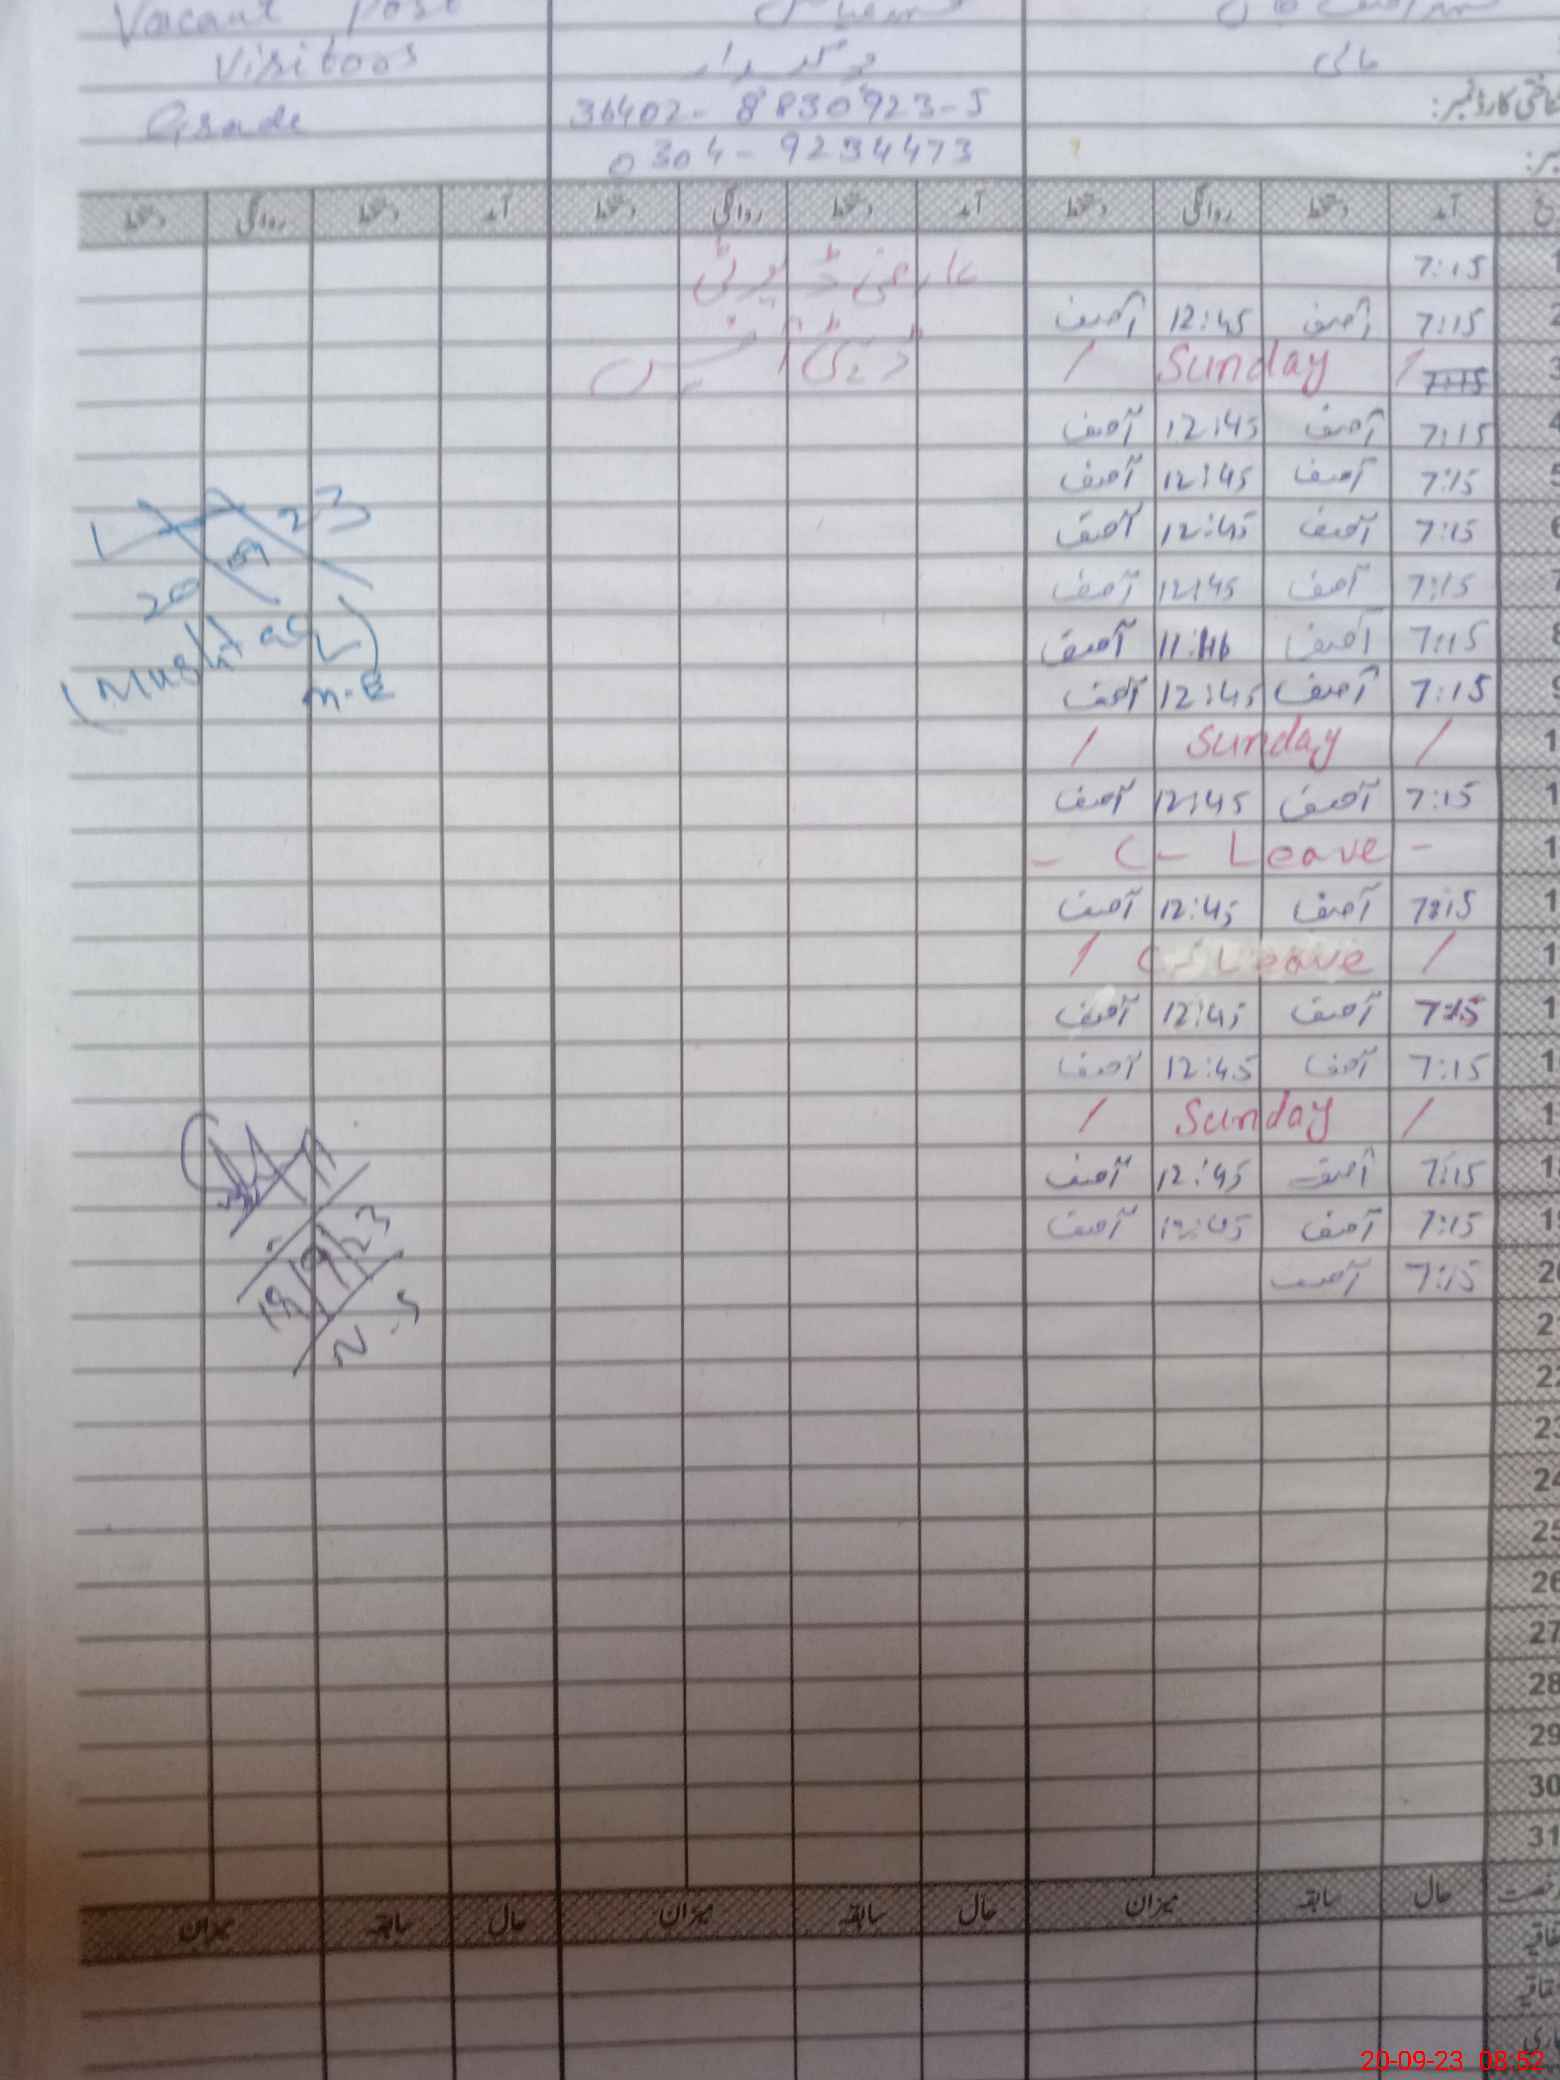 Vacant Post
مالی
چوکیدار
Visitors
36402-8830923-5
Grade
0304-9234473
آمد دستخط روانگی دستخط آمد دستخط روانگی دستخط آمد دستخط روانگی دستخط
7:15 عارضی ڈیوٹی
2 7:15 آصف 12:45 آصف
3 7:15 / Sunday /
4 7:15 آصف 12:45 آصف
5 7:15 آصف 12:45 آصف
6 7:15 آصف 12:45 آصف
7 7:15 آصف 12:45 آصف
8 7:15 آصف 11:46 آصف
9 7:15 آصف 12:45 آصف
/ Sunday /
7:15 آصف 12:45 آصف
- C- Leave -
7:15 آصف 12:45 آصف
/ C- Leave /
7:15 آصف 12:45 آصف
7:15 آصف 12:45 آصف
/ Sunday /
7:15 آصف 12:45 آصف
7:15 آصف 12:45 آصف
7:15 آصف
23
20
(Mushtaq)
M.E
19/9/23
N.S
22
23
24
25
26
27
28
29
30
31
حال سابقہ میزان حال سابقہ میزان حال سابقہ میزان
20-09-23 08:52